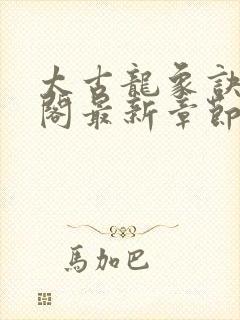 太古龍象訣
閣最新章節
馬加巴